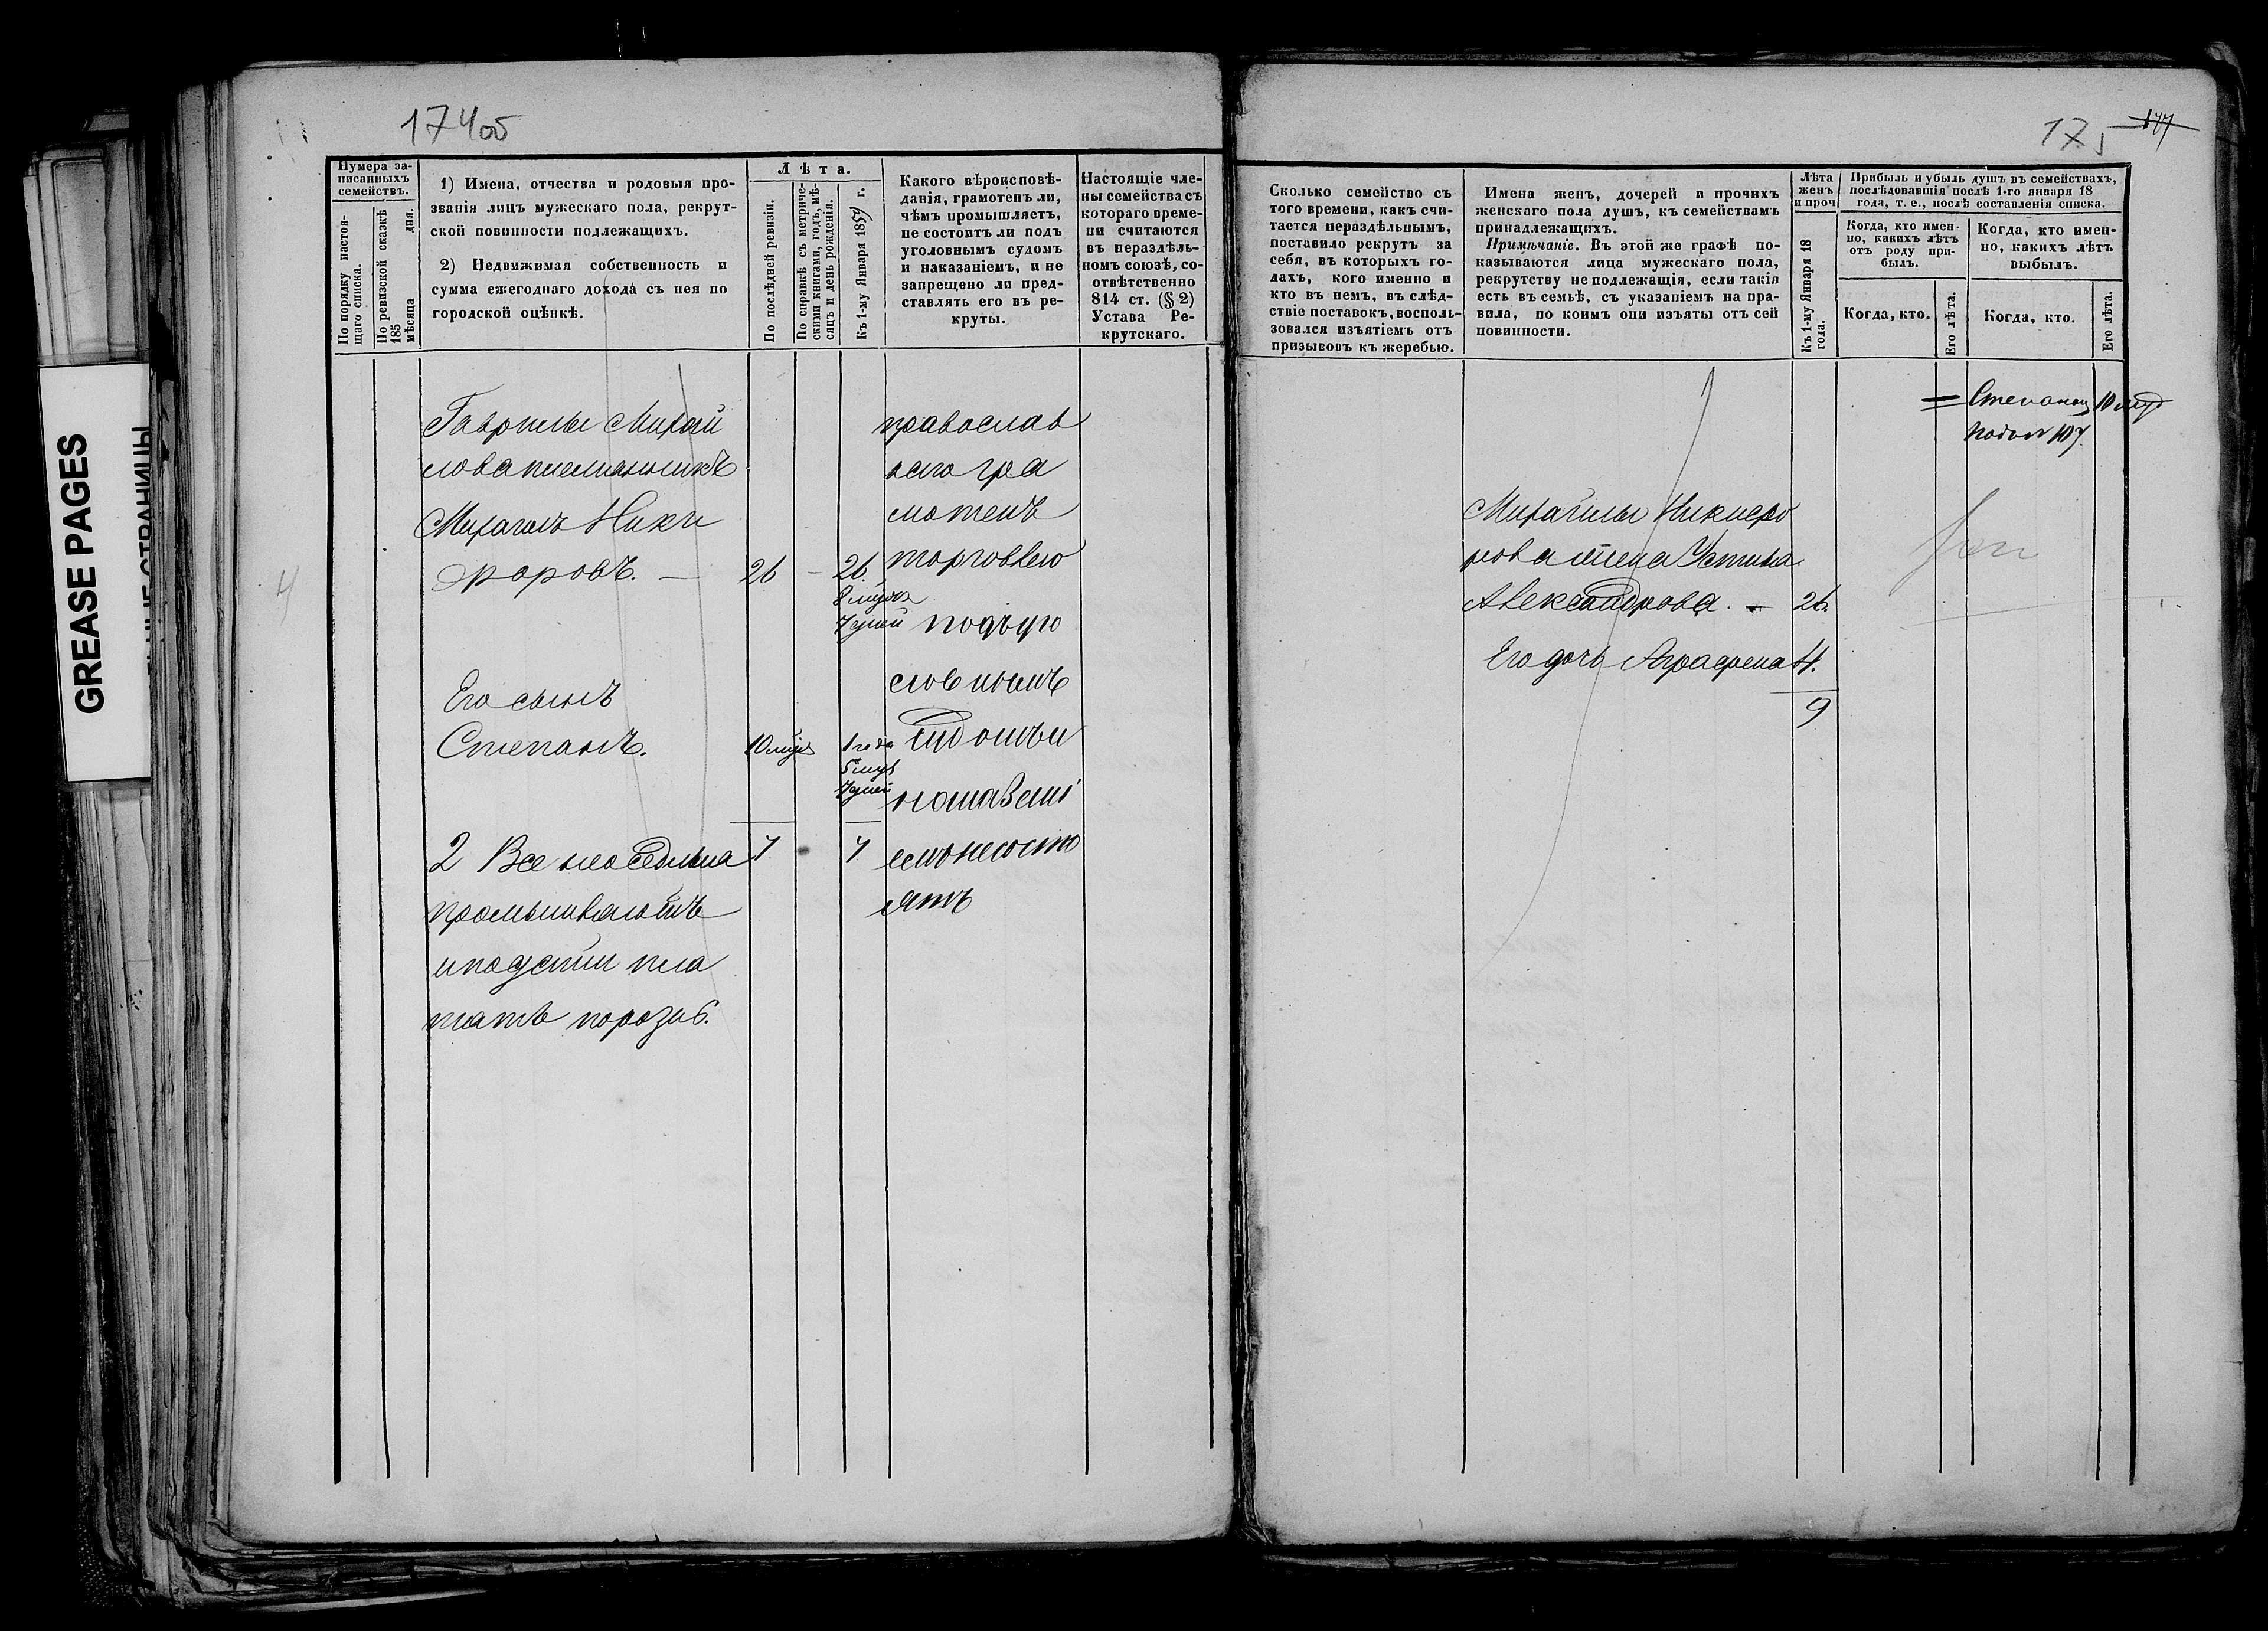 174 об
Нумера за-
писанныхъ
семействъ.
По порядку настоя-
щаго списка.
По ревизской сказкѣ
185 дня.
мѣсяца
1) Имена, отчества и родовыя про-
званія лицъ мужескаго пола, рекрут-
ской повинности подлежащихъ.
2) Недвижимая собственность и
сумма ежегоднаго дохода съ нея по
городской оцѣнкѣ.
Лѣта.
По послѣдней ревизіи.
По справкѣ съ метриче-
скими книгами, годъ, мѣ-
сяцъ и день рожденія.
Къ 1-му Января 1859 г.
Какого вѣроисповѣ-
данія, грамотенъ ли,
чѣмъ промышляетъ,
не состоитъ ли подъ
уголовнымъ судомъ
и наказаніемъ, и не
запрещено ли пред-
ставлять его въ ре-
круты.
Настоящіе чле-
ны семейства съ
котораго време-
ни считаются
въ нераздѣль-
номъ союзѣ, со-
отвѣтственно
814 ст. (§ 2)
Устава Ре-
крутскаго.
Гаврилы Михай
лова племянникъ
Михаилъ Ники
форовъ. — 26 — 26.
8 мѣся
7 дней
Его сынъ
Степанъ. 10 мѣс 1 года
5 мѣс
7 дней
7 7
2 Все
промышляютъ
и подати пла
тятъ
православ
наго гра
мотенъ
торговлею
подъуго
ловнымъ
судомъ и
наказані
емъ несосто
ятъ
4
175
177
Сколько семейство съ
того времени, какъ счи-
тается нераздѣльнымъ,
поставило рекрутъ за
себя, въ которыхъ го-
дахъ, кого именно и
кто въ немъ, въ слѣд-
ствіе поставокъ, восполь-
зовался изъятіемъ отъ
призывовъ къ жеребью.
Имена женъ, дочерей и прочихъ
женскаго пола душъ, къ семействамъ
принадлежащихъ.
Примѣчаніе. Въ этой же графѣ по-
казываются лица мужескаго пола,
рекрутству не подлежащія, если такія
есть въ семьѣ, съ указаніемъ на пра-
вила, по коимъ они изъяты отъ сей
повинности.
Лѣта
женъ
и проч
Къ 1-му Января 18
года.
Прибыль и убыль душъ въ семействахъ,
послѣдовавшія послѣ 1-го января 18
года, т. е., послѣ составленія списка.
Когда, кто имен-
но, какихъ лѣтъ
отъ роду при-
былъ.
Когда, кто имен-
но, какихъ лѣтъ
выбылъ.
Когда, кто.
Его лѣта.
Когда, кто.
Его лѣта.
Михайлы Никифо
рова жена Устинья
Александрова. — 26.
Его дочь Аграфена 4.
9
GREASE PAGES